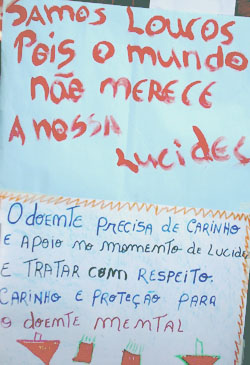 SAMOS LOUCOS
POIS O MUNDO
NÃO MERECE
A NOSSA
LUCIDES
O DOENTE PRECISA DE CARINHO
E APOIO NO MOMENTO DE LUCIDE
E TRATAR COM RESPEITO.
CARINHO E PROTEÇÃO PARA
O DOENTE MEMTAL